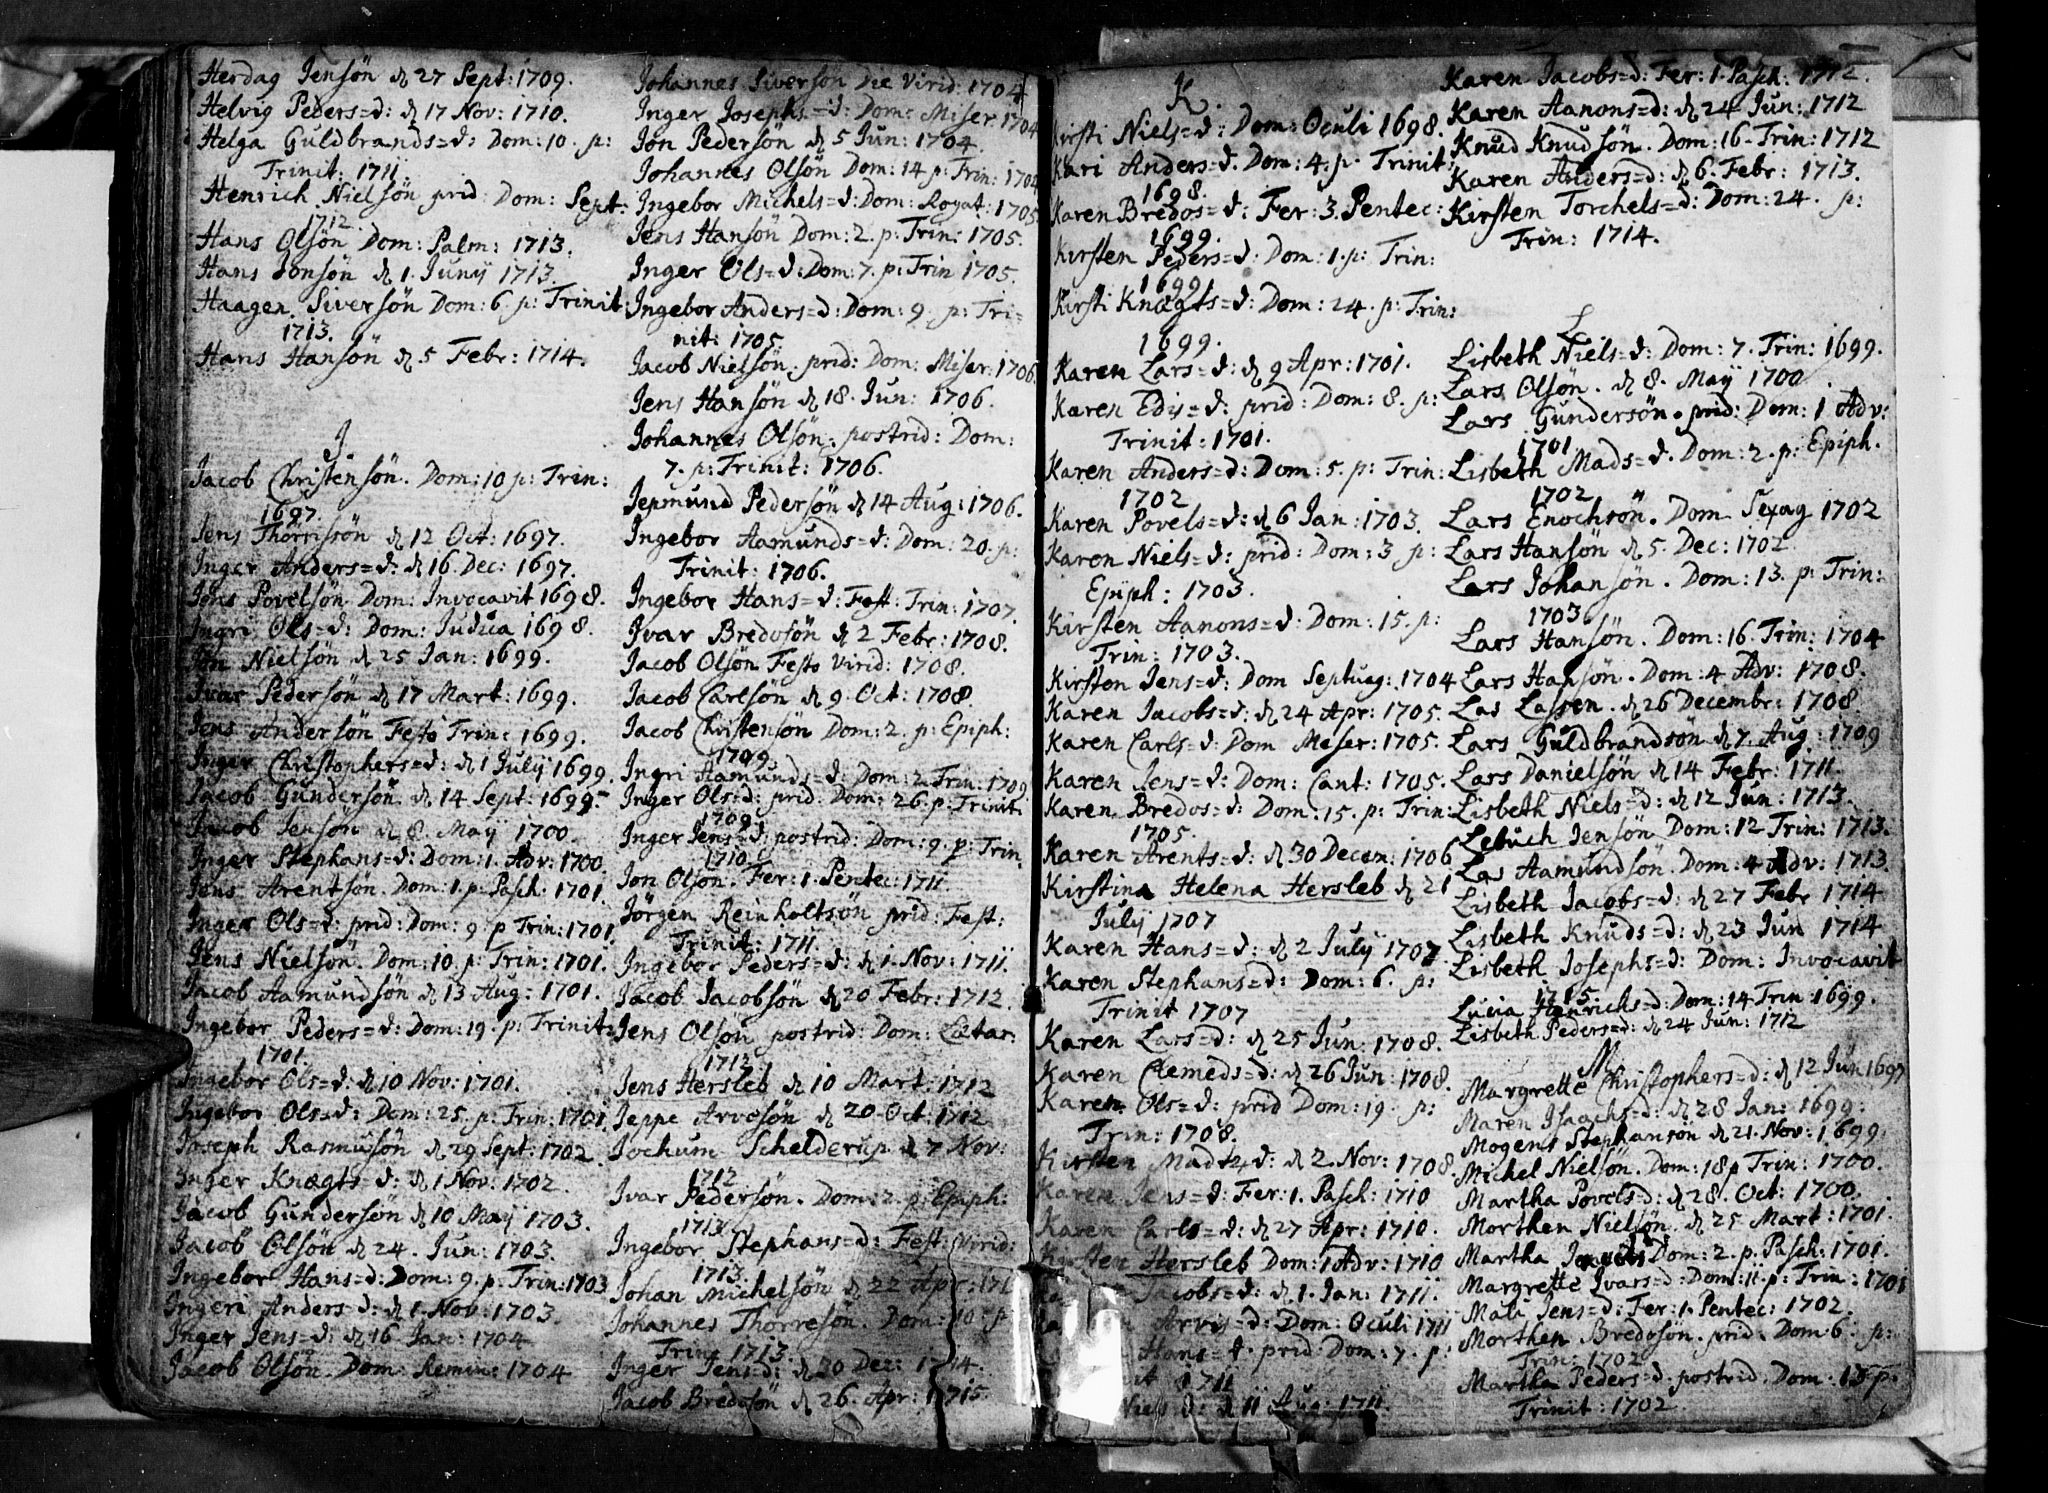 Herdag Jensøn d 27 Sept: 1709.
Helvig Peders=d: d 17 Nov: 1710.
Helga Guldbrands=d: Dom: 10. p:
Trinit: 1711.
Henrich Nielsøn prid: Dom: Sept:
1712.
Hans Olsøn Dom: Palm: 1713.
Hans Jonsøn d 1. Junij 1713.
Haagen Siversøn Dom: 6 p: Trinit:
1713.
Hans Hansøn d 5 Febr: 1714.
J.
Jacob Christensøn. Dom: 10 p: Trin:
1697.
Jens Thorrissøn d 12 Oct: 1697.
Inger Anders=d: d 16. Dec: 1697.
Jøns Povelsøn Dom: Invocavit 1698.
Ingri Ols=d: Dom: Judica 1698.
Jon Nielsøn d 25 Jan: 1699.
Ivar Pedersøn d 17 Mart: 1699.
Jens Andersøn Festo Trin: 1699.
Inger Christophers=d: d 1 Julij 1699.
Jacob Gundersøn d 14 Sept: 1699.
Jacob Jensøn d 8. Maij 1700.
Inger Stephans=d: Dom: 1. Adv: 1700.
Jens Arentsøn. Dom: 1. p: Pasch: 1701.
Inger Ols=d: prid: Dom: 9 p Trin: 1701.
Jens Nielsøn. Dom: 10 p: Trin: 1701.
Jacob Aamundsøn d 13 Aug: 1701.
Ingebor Peders=d: Dom: 19. p: Trinit:
1701.
Ingebor Ols=d: d 10 Nov: 1701.
Ingebor Ols=d: Dom: 25. p: Trin: 1701.
Joseph Rasmusøn d 29 Sept: 1702.
Inger Knægts=d: d 1 Nov: 1702.
Jacob Gundersøn d 10 Maij 1703.
Jacob Olsøn d 24. Jun: 1703.
Ingebor Hans=d: Dom: 9. p: Trin: 1703
Ingeri Anders=d: d 1. Nov: 1703.
Inger Jens=d: d 16 Jan: 1704
Jacob Olsøn. Dom: Remin: 1704
Johannes Siversøn Die Virid: 1704
Inger Josephs=d: Dom: Miser 1704
Jon Pedersøn d 5 Jun: 1704.
Johannes Olsøn Dom: 14 p: Trin: 1704
Ingebor Michels=d: Dom: Rogat: 1705
Jens Hansøn Dom: 2. p: Trin: 1705.
Inger Ols=d: Dom: 7. p: Trin 1705.
Ingebor Anders=d: Dom: 9. p: Tri=
nit: 1705.
Jacob Nielsøn. prid: Dom: Miser: 1706.
Jens Hansøn d 18. Jun: 1706.
Johannes Olsøn. postrid: Dom:
7. p: Trinit: 1706.
Jepmund Pedersøn d 14 Aug: 1706.
Ingebor Aamunds=d: Dom: 20. p:
Trinit: 1706.
Ingebor Hans=d: Fest: Trin: 1707.
Ivar Bredosøn d 2 Febr: 1708.
Jacob Olsøn Festo Virid: 1708.
Jacob Carlsøn d 9. Oct: 1708.
Jacob Christensøn Dom: 2. p: Epiph:
1709.
Ingri Aamunds=d: Dom: 2 Trin: 1709
Inger Ols=d: prid: Dom: 26. p: Trinit:
1709.
Inger Jens=d: postrid: Dom: 9. p: Trin.
1710.
Jon Olsøn. Fer: 1. Pentec: 1711
Jørgen Reinholtsøn prid: Fest:
Trinit: 1711.
Ingebor Peders=d: d 1. Nov: 1711.
Jacob Jacobsøn d 20 Febr: 1712.
Jens Olsøn postrid: Dom: Lætar:
1712
Jens Hersleb d 10 Mart: 1712
Jeppe Arvesøn d 20 Oct: 1712
Jochum Schelderup d 7 Nov:
1712
Ivar Pedersøn. Dom: 2. p: Epiph:
1713
Ingebor Stephans=d: Fest: Virid:
1713.
Johan Michelsøn d 22 Apr:
Johannes Thorresøn. Dom: 10. p
Trin: 1713.
Inger Jens=d: d 20 Dec: 1714.
Jacob Bredosøn d 26. Apr: 1715.
K.
Kirsti Niels=d: Dom: Oculi 1698.
Kari Anders=d. Dom: 4. p. Trinit:
1698.
Karen Bredos=d: Fer: 3. Pentec:
1699.
Kirsten Peders=d: Dom: 1. p: Trin:
1699.
Kirsti Knægts=d: Dom: 24. p: Trin:
1699.
Karen Lars=d: d 9 Apr: 1701.
Karen Edis=d: prid: Dom: 8. p:
Trinit: 1701.
Karen Anders=d: Dom: 5. p: Trin:
1702
Karen Povels=d: d 6 Jan: 1703.
Karen Niels=d: prid: Dom: 3 p:
Epiph: 1703.
Kirsten Aanons=d: Dom: 15. p:
Trin: 1703.
Kirsten Jens=d: Dom Septuag: 1704
Karen Jacobs=d: d 24 Apr: 1705.
Karen Carls=d: Dom Meser: 1705.
Karen Jens=d: Dom: Cant: 1705.
Karen Bredos=d: Dom: 15. p: Trin:
1705.
Karen Arents=d: d 30 Decem: 1706
Kirstina Helena Hersleb d 21
Julij 1707
Karen Hans=d: d 2 Julij 1707.
Karen Stephans=d: Dom: 6. p:
Trinit 1707
Karen Lars=d: d 25 Jun: 1708.
Karen Clemeds=d: d 26 Jun: 1708.
Karen Ols=d: prid Dom: 19. p:
Trin: 1708.
Kirsten Mads=d: d 2. Nov: 1708.
Karen Jens=d: Fer: 1. Pasch: 1710
Karen Carls=d: d 27 Apr: 1710.
Kirsten Hersleb Dom: 1 Adv: 1710
Jacobs=d: d 1. Jan: 1711.
Arvis=d: Dom: Oculi 1711
Hans=d. prid Dom: 7. p:
1711
Niels d: d 11 Aug: 1711.
Karen Jacobs=d: Fer: 1. Pasch: 1712.
Karen Aanons=d: d 24 Jun: 1712
Knud Knudsøn. Dom: 16. Trin: 1712
Karen Anders=d: d 6. Febr: 1713.
Kirsten Torchels=d: Dom: 24. p:
Trin: 1714.
L
Lisbeth Niels=d: Dom: 7. Trin: 1699.
Lars Olsøn. d 8. Maij 1700.
Lars Gundersøn. prid: Dom: 1 Adv:
1701
Lisbeth Mads=d. Dom: 2. p: Epiph.
1702
Lars Enochsøn. Dom Sexag 1702
Lars Hansøn d 5. Dec: 1702.
Lars Johansøn. Dom: 13. p: Trin:
1703
Lars Hansøn. Dom: 16. Trin: 1704
Lars Hansøn. Dom: 4 Adv: 1708.
Las Lassen. d 26 Decembr: 1708
Lars Guldbrandsøn d 7. Aug: 1709
Lars Danielsøn d 14 Febr: 1711.
Lisbeth Niels=d: d 12 Jun: 1713.
Jensøn Dom: 12 Trin: 1713.
Las Aamundsøn. Dom: 4 Adv: 1713.
Lisbeth Jacobs=d: d 27 Febr 1714
Lisbeth Knuds=d: d 23 Jun 1714
Lisbeth Josephs=d: Dom: Invocavit
1715.
Lucia Henrichs=d: Dom: 14 Trin 1699.
Lisbeth Peders=d: d 24 Jun: 1712
M
Margrette Christophers=d: d 12 Jun 1697
Maren Isaachs=d: d 28 Jan: 1699:
Mogens Stephansøn d 21. Nov: 1699.
Michel Nielsøn. Dom: 18 p Trin: 1700.
Martha Povels d: d 28. Oct: 1700.
Morthen Nielsøn. d 25 Mart: 1701.
Martha Dom: 2. p. Pasch: 1701.
Margrette Ivars=d: Dom: 11. p: Trin: 1701
Mali Jens=d: Fer: 1. Pentec: 1702.
Morthen Bredosøn. prid: Dom 6. p:
Trin: 1702
Martha Peders=d. postrid. Dom. 15 p.
Trinit: 1702.